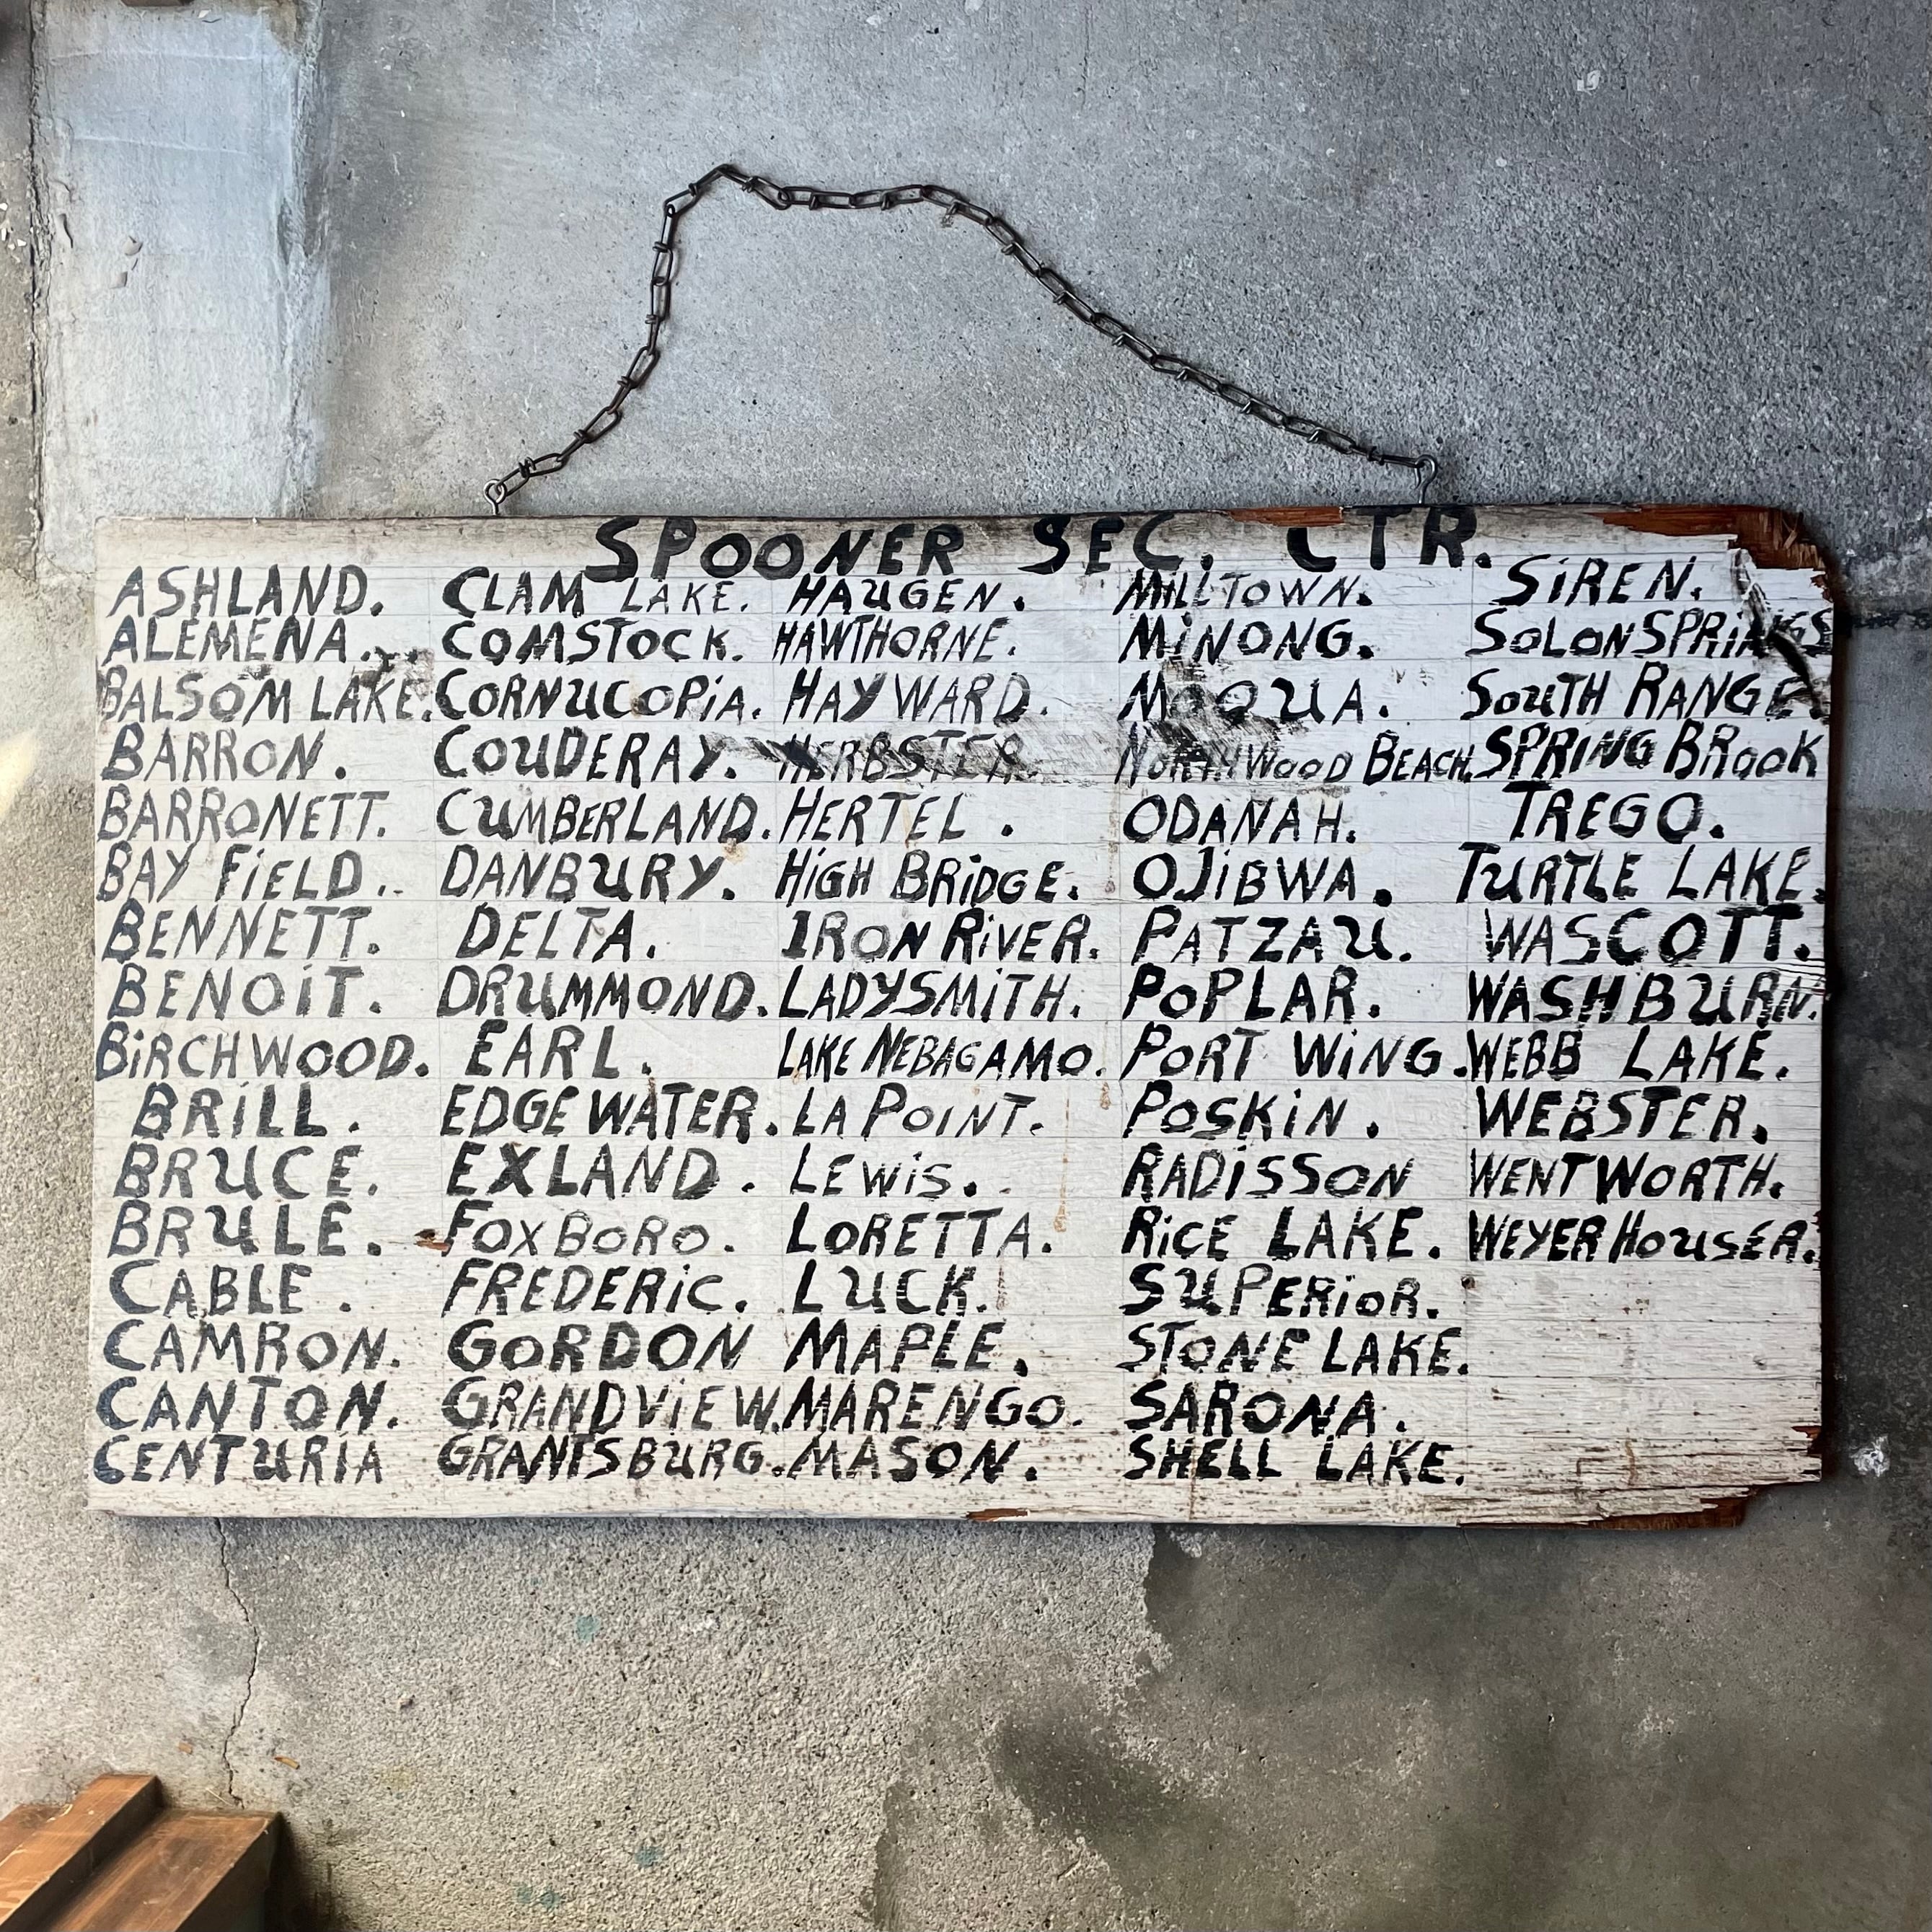 SPOONER SEC. CTR.
ASHLAND.
ALEMENA.
BALSOM LAKE.
BARRON.
BARRONETT.
BAY FiELD.
BENNETT.
BENOiT.
BiRCHWOOD.
BRiLL.
BRUCE.
BRULE.
CABLE.
CAMRON.
CANTON.
CENTURIA
CLAM LAKE.
COMSTOCK.
CORNUCOPiA.
COUDERAY.
CUMBERLAND.
DANBURY.
DELTA.
DRUMMOND.
EARL.
EDGEWATER.
EXLAND.
FOXBORO.
FREDERiC.
GORDON
GRANDViEW.
GRANTSBURG.
HAUGEN.
HAWTHORNE.
HAYWARD.
HERBSTER.
HERTEL.
HiGH BRiDGE.
IRON RiVER.
LADYSMiTH.
LAKE NEBAGAMO.
LA POINT.
LEWiS.
LORETTA.
LUCK.
MAPLE.
MARENGO.
MASON.
MILLTOWN.
MiNONG.
MOQUA.
NORTHWOOD BEACH.
ODANAH.
OJiBWA.
PATZAU.
POPLAR.
PORT WiNG.
POSKiN.
RADiSSON
RiCE LAKE.
SUPERiOR.
STONE LAKE.
SARONA.
SHELL LAKE.
SiREN.
SOLON SPRiNGS
SOUTH RANGE.
SPRING BROOK
TREGO.
TURTLE LAKE.
WASCOTT.
WASHBURN.
WEBB LAKE.
WEBSTER.
WENTWORTH.
WEYERHOUSER.